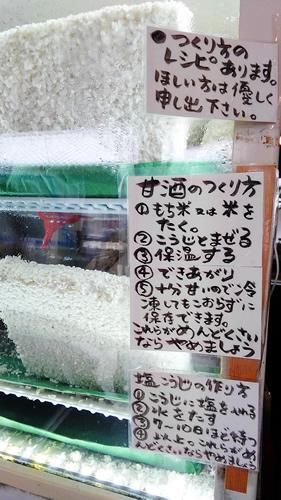 ●つくり方の
レシピあります。
ほしい方は優しく
申し出下さい。
甘酒のつくり方
①もち米又は米を
たく。
②こうじとまぜる
③保温する
④できあがり
⑤十分甘いので冷
凍してもこおらずに
保存できます。
これらがめんどくさい
ならやめましょう
塩こうじの作り方
①こうじに塩をいれる
②水をたす
③7〜10日ほど待つ
④以上。これらがめ
んどくさいならやめましょう